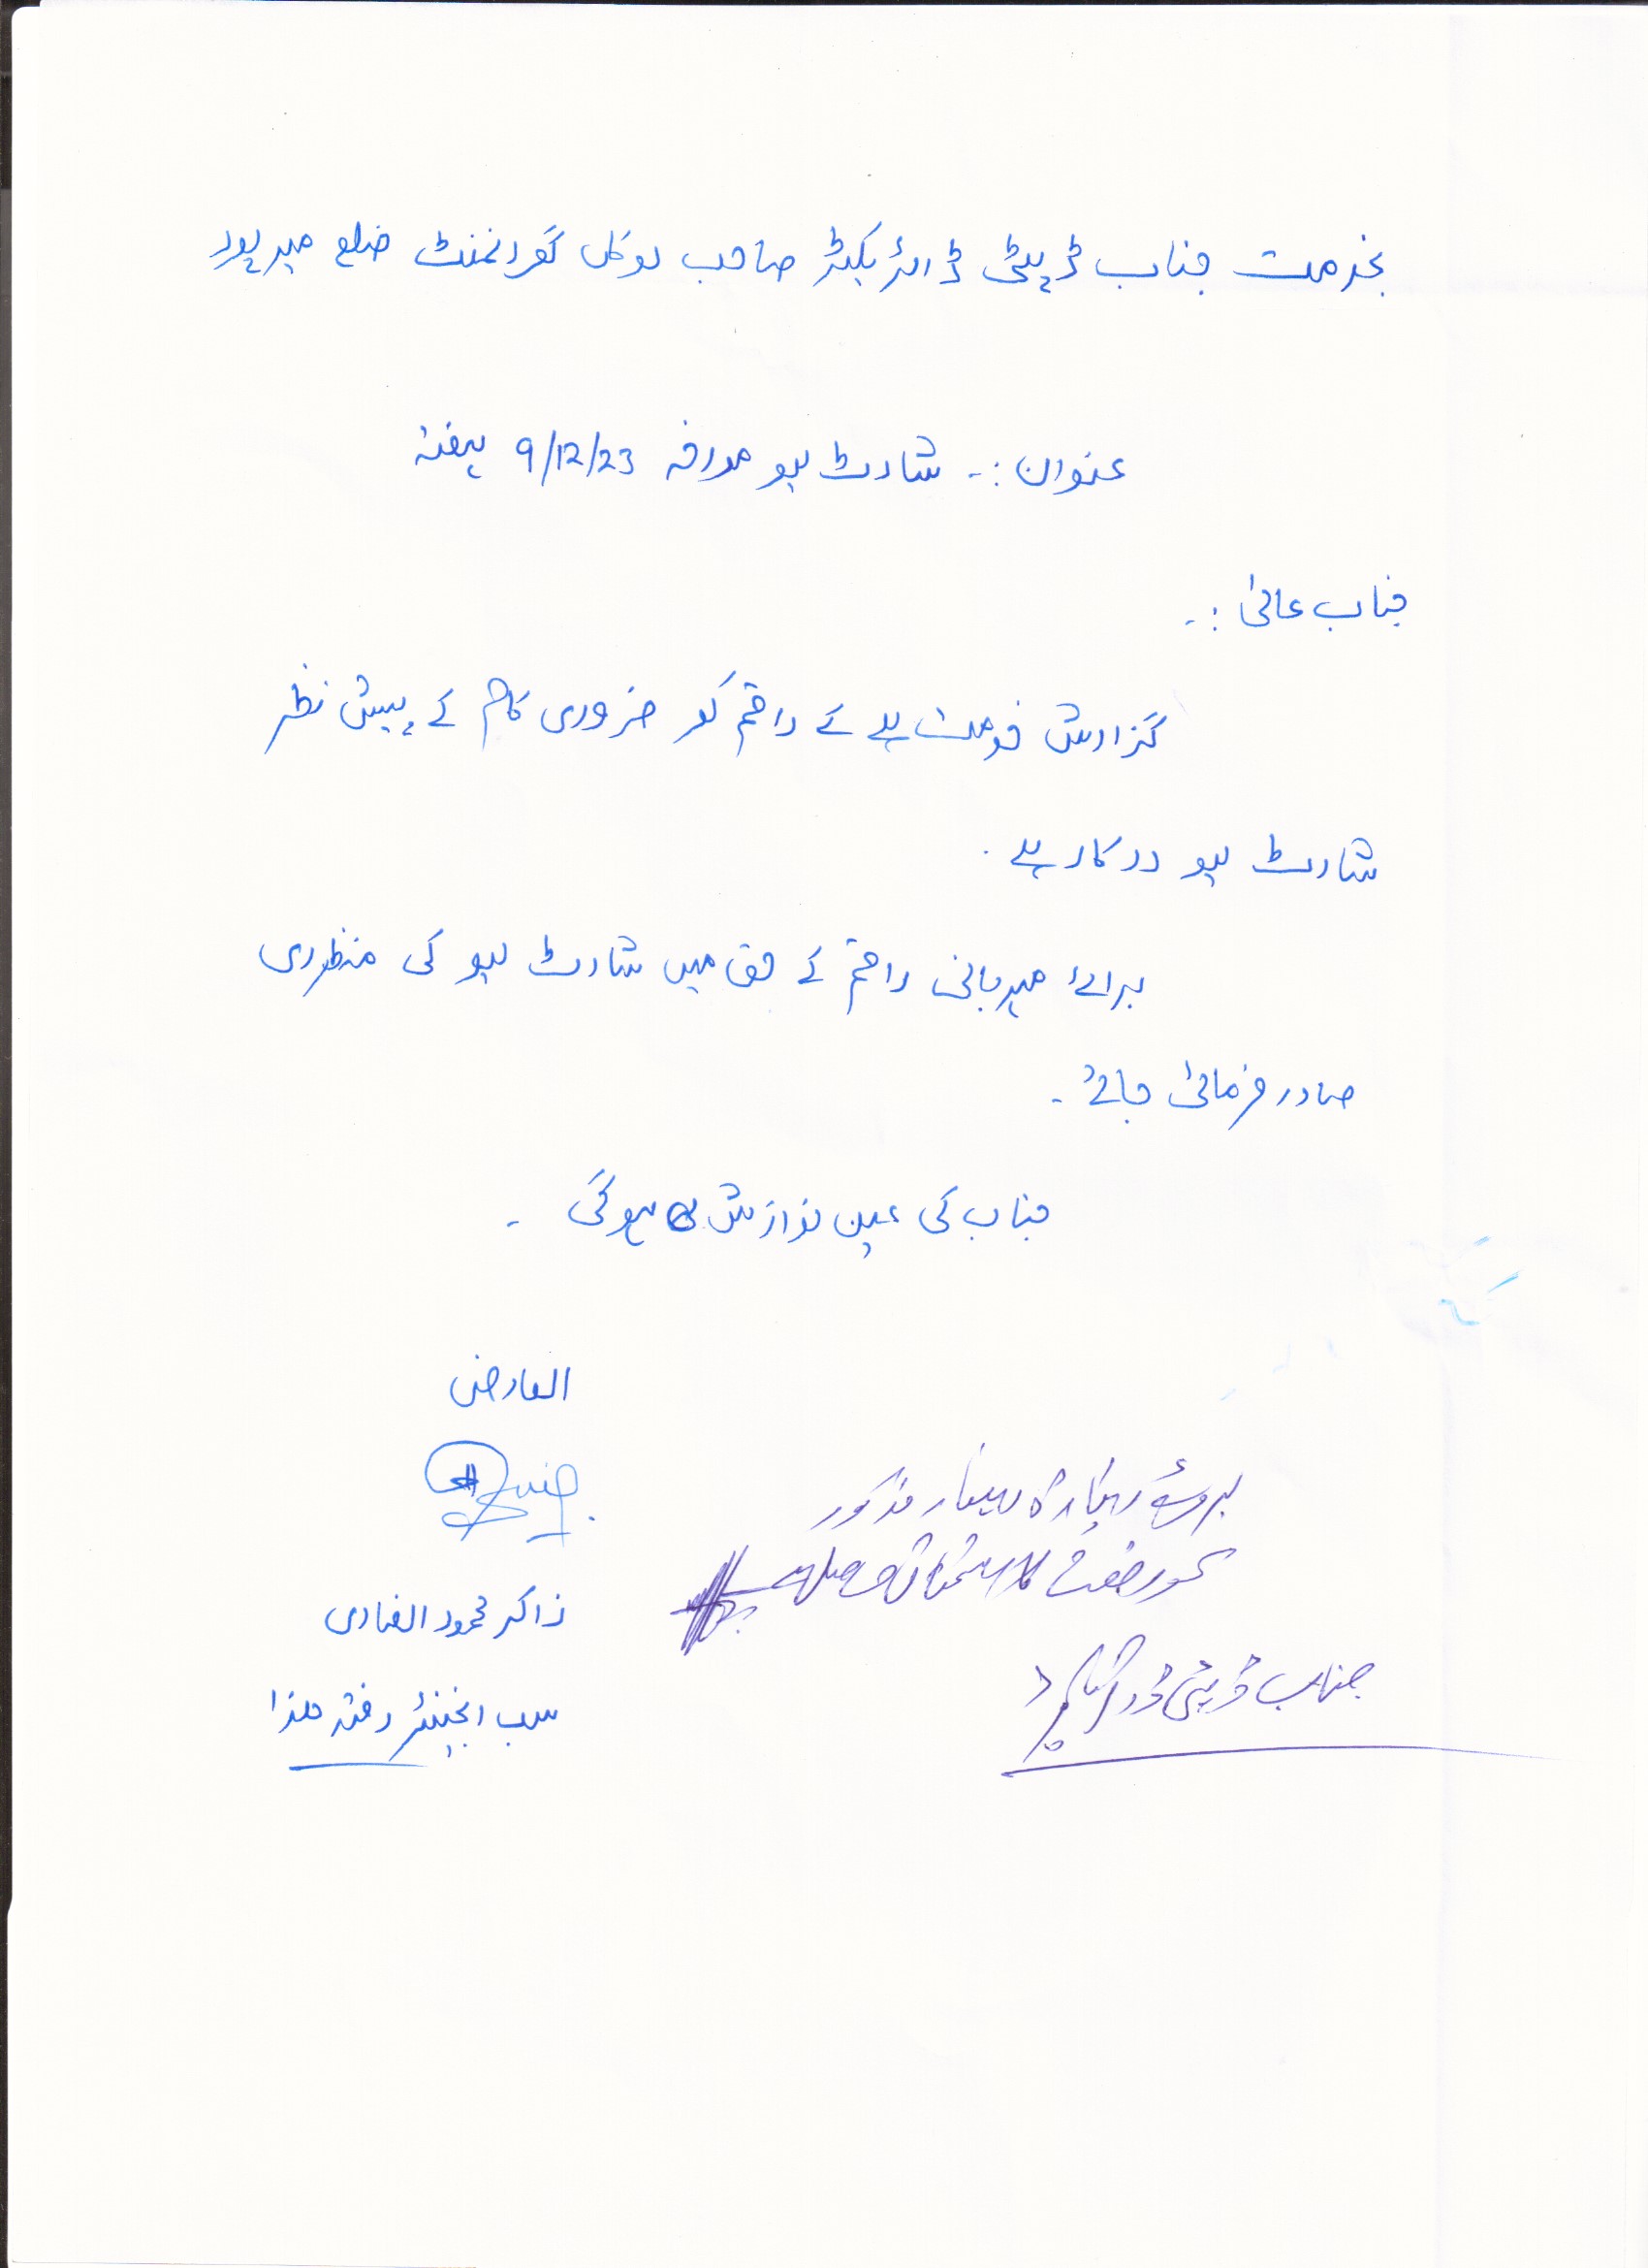 بخدمت جناب ڈپٹی ڈائریکٹر صاحب لوکل گورنمنٹ ضلع میرپور
عنوان :۔ شارٹ لیو مورخہ 9/12/23 ہفتہ
جناب عالیٰ :۔
گزارش خدمت ہے کے راقم کو ضروری کام کے پیش نظر
شارٹ لیو درکار ہے ۔
برائے مہربانی راقم کے حق میں شارٹ لیو کی منظوری
صادر فرمائی جائے ۔
جناب کی عین نوازش ہوگی ۔
العارض
ذاکر محمود انصاری
سب انجینئر دفتر ھذا
بروئے ریکارڈ
جناب ڈپٹی ڈائریکٹر